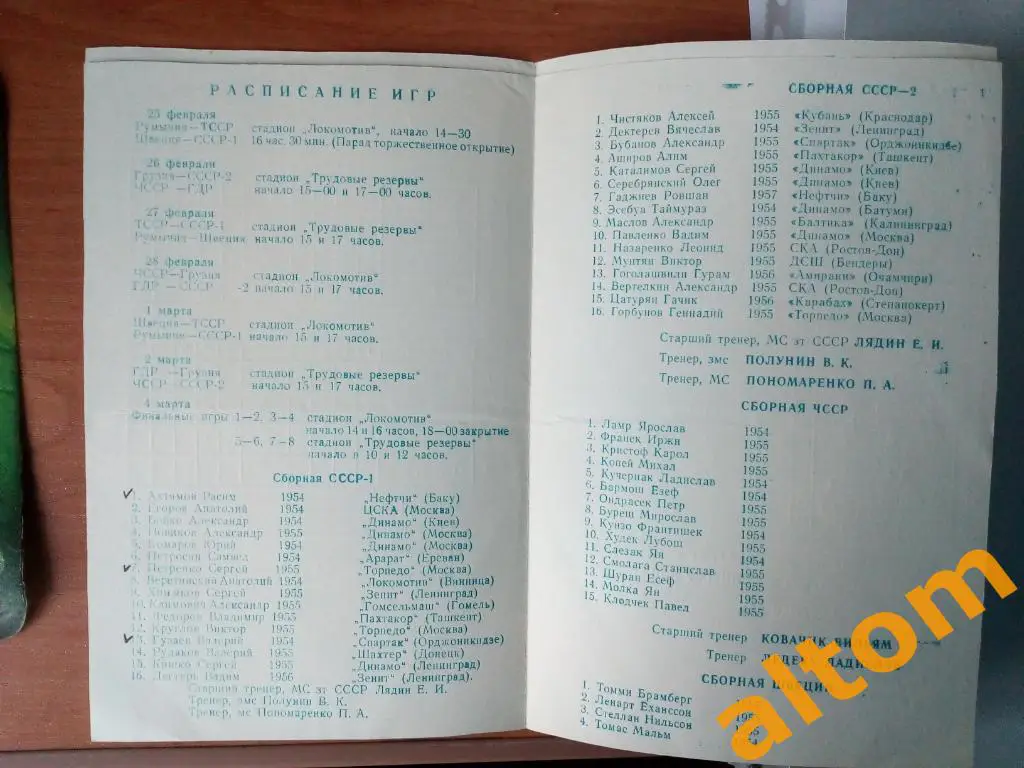 РАСПИСАНИЕ ИГР
25 февраля
Румыния—ТССР стадион „Локомотив“, начало 14—30
Швеция—СССР-1 16 час. 30 мин. (Парад торжественное открытие)
26 февраля
Грузия—СССР-2 стадион „Трудовые резервы“
ЧССР—ГДР начало 15—00 и 17—00 часов.
27 февраля
ТССР—СССР-1 стадион „Трудовые резервы“
Румыния—Швеция начало 15 и 17 часов.
28 февраля
ЧССР—Грузия стадион „Локомотив“
ГДР — СССР -2 начало 15 и 17 часов.
1 марта
Швеция—ТССР стадион „Локомотив“
Румыния—СССР-1 начало 15 и 17 часов.
2 марта
ГДР—Грузия стадион „Трудовые резервы“
ЧССР—СССР-2 начало 15 и 17 часов.
4 марта
Финальные игры 1—2, 3—4 стадион „Локомотив“
начало 14 и 16 часов, 18—00 закрытие
5—6, 7—8 стадион „Трудовые резервы“
начало в 10 и 12 часов.
Сборная СССР-1
1. Ахтямов Расим 1954 „Нефтчи“ (Баку)
2. Егоров Анатолий 1954 ЦСКА (Москва)
3. Бойко Александр 1954 „Динамо“ (Киев)
4. Новиков Александр 1954 „Динамо“ (Москва)
5. Комаров Юрий 1954 „Динамо“ (Москва)
6. Петросян Самвел 1954 „Арарат“ (Ереван)
7. Петренко Сергей 1955 „Торпедо“ (Москва)
8. Веретинский Анатолий 1954 „Локомотив“ (Винница)
9. Хмяков Сергей 1954 „Зенит“ (Ленинград)
10. Климович Александр 1955 „Гомсельмаш“ (Гомель)
11. Федоров Владимир 1955 „Пахтакор“ (Ташкент)
12. Круглов Виктор 1955 „Торпедо“ (Москва)
13. Газзаев Валерий 1954 „Спартак“ (Орджоникидзе)
14. Рудаков Валерий 1955 „Шахтер“ (Донецк)
15. Кишко Сергей 1955 „Динамо“ (Ленинград)
16. Дегтерь Вадим 1956 „Зенит“ (Ленинград).
Старший тренер, МС зт СССР Лядин Е. И.
Тренер, змс Полунин В. К.
Тренер, МС Пономаренко П. А.
СБОРНАЯ СССР—2
1. Чистяков Алексей 1955 «Кубань» (Краснодар)
2. Дектерев Вячеслав 1954 «Зенит» (Ленинград)
3. Бубанов Александр 1955 «Спартак» (Орджоникидзе)
4. Аширов Алим 1955 «Пахтакор» (Ташкент)
5. Каталимов Сергей 1955 «Динамо» (Киев)
6. Серебрянский Олег 1955 «Динамо» (Киев)
7. Гаджиев Ровшан 1957 «Нефтчи» (Баку)
8. Эсебуа Таймураз 1954 «Динамо» (Батуми)
9. Маслов Александр 1955 «Балтика» (Калининград)
10. Павленко Вадим 1955 «Динамо» (Москва)
11. Назаренко Леонид 1955 СКА (Ростов-Дон)
12. Мунтян Виктор 1955 ДСШ (Бендеры)
13. Гоголашвили Гурам 1956 «Амирани» (Очамчири)
14. Вертелкин Александр 1955 СКА (Ростов-Дон)
15. Цатурян Гачик 1956 «Карабах» (Степанокерт)
16. Горбунов Геннадий 1955 «Торпедо» (Москва)
Старший тренер, МС зт СССР ЛЯДИН Е. И.
Тренер, змс ПОЛУНИН В. К.
Тренер, МС ПОНОМАРЕНКО П. А.
СБОРНАЯ ЧССР
1. Ламр Ярослав 1954
2. Франек Иржи 1955
3. Кристоф Карол 1955
4. Копей Михал 1955
5. Кучерняк Ладислав 1954
6. Бармош Езеф 1954
7. Ондрасек Петр 1955
8. Буреш Мирослав 1955
9. Кунзо Франтишек 1954
10. Худек Лубош 1955
11. Слезак Ян 1954
12. Смолага Станислав 1955
13. Шуран Есеф 1955
14. Молка Ян 1955
15. Клодчек Павел 1955
Старший тренер КОВАЧИК ВИЛЬЯМ
Тренер
СБОРНАЯ ШВЕЦИИ
1. Томми Брамберг
2. Ленарт Еханссон
3. Стеллан Нильсон
4. Томас Мальм
altom